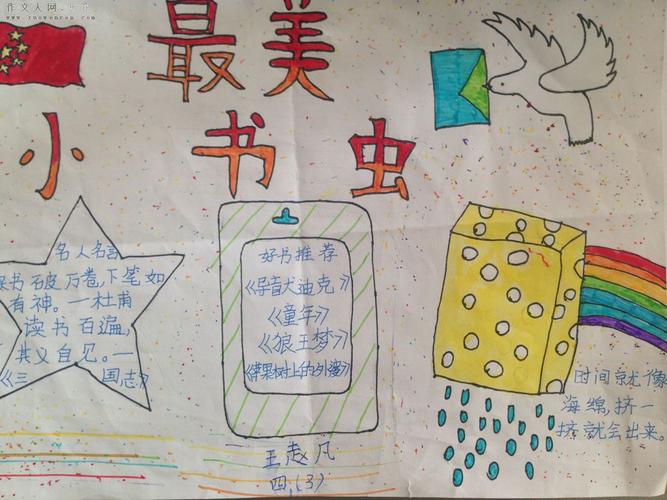 作文人网
www.zuowenren.com
最美
小书虫
名人名言
读书破万卷,下笔如
有神。一杜甫
读书百遍,
其义自见。一
《三国志》
好书推荐
《导音大迪克》
《童年》
《狼王梦》
《苹果树上的外婆》
王赵凡
四.(3)
时间就像
海绵,挤一
挤就会出来。